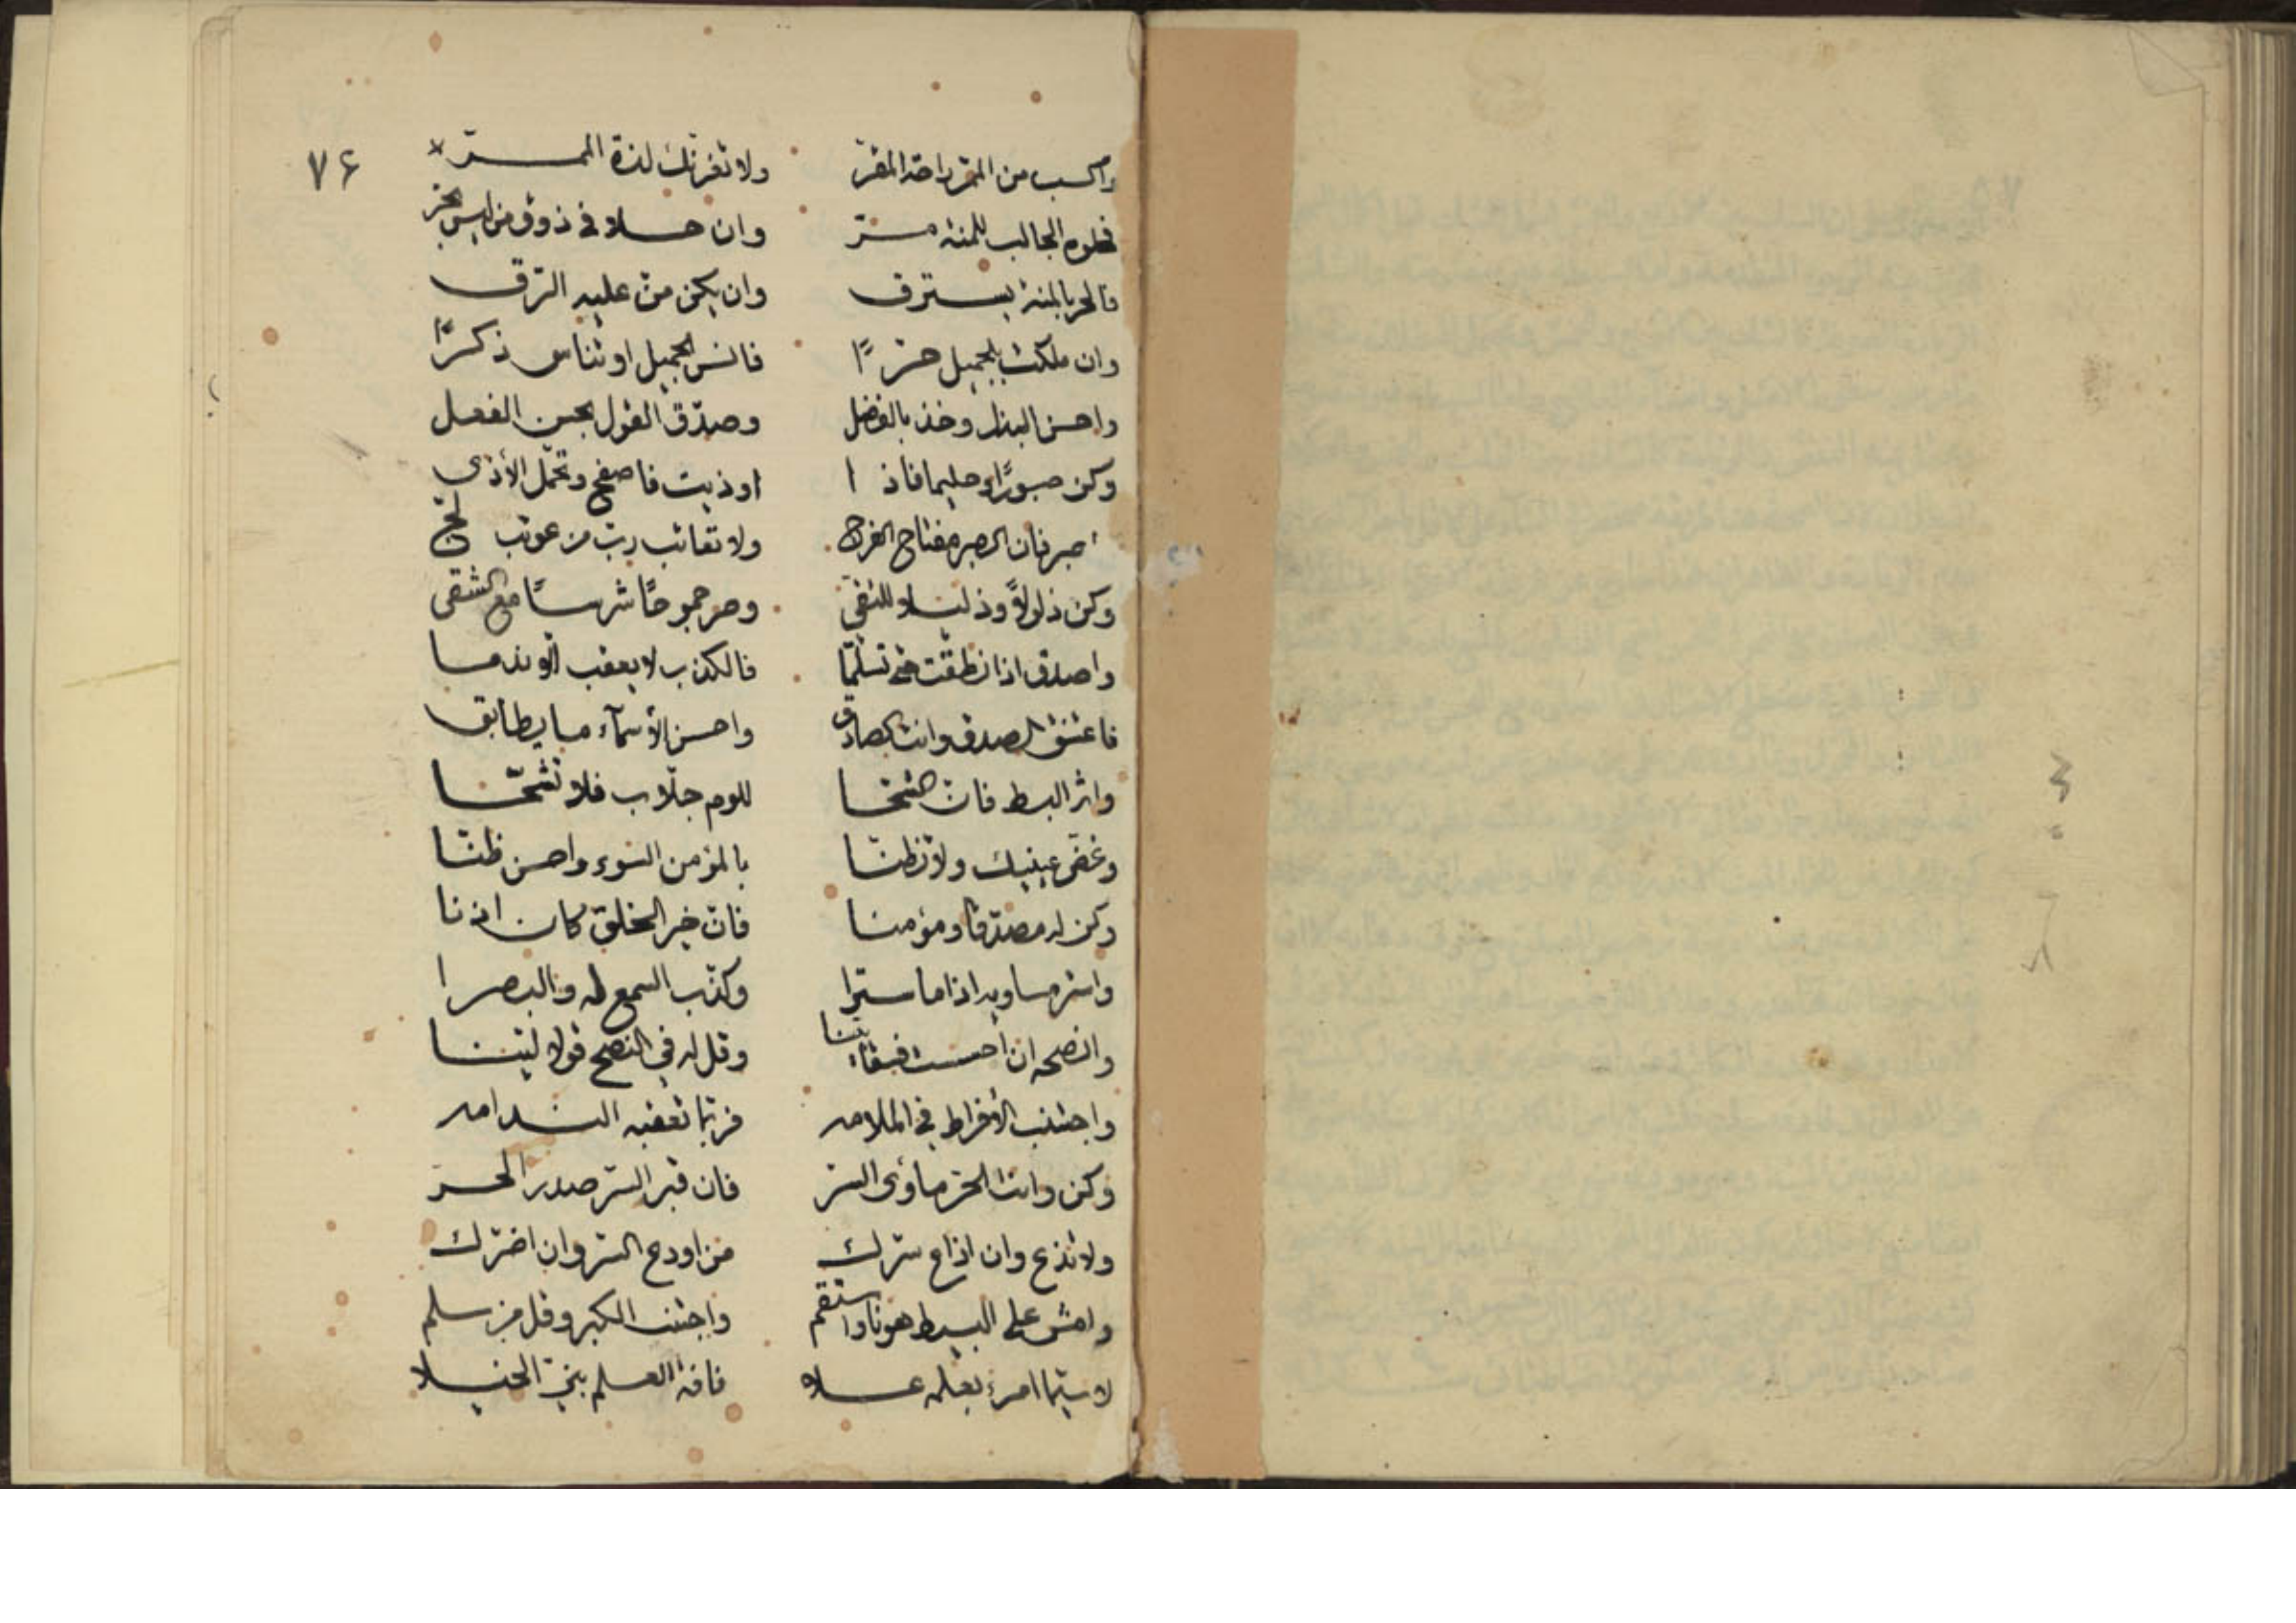 ٧٦
واكسب من الممر راحة المقر ولا تغرنك لذة الممر
فحلوه الجالب للمنة مر وان حلا في ذوق من ليس بحر
فالحر بالمنة يسترق وان يكن من عليه الرق
وان ملكت بالجميل حرًا فانس الجميل او تناس ذكرًا
واحسن البذل وخذ بالفضل وصدّق القول بحسن الفعل
وكن صبورًا وحليما فاذا اوذيت فاصفح وتحمّل الأذى
اصبر فان الصبر مفتاح الفرج ولا تعاتب ربّ من عوتب لجّ
وكن ذلولاً وذليلا للتقى وصر جموحًا شرسًا مع الشقى
واصدق اذا نطقت حتى تسلما فالكذب لا يعقب الا ندما
فاعتنق الصدق وانت الصادق واحسن الأسمآء ما يطابق
واثر البسط فانّ الشحّا للوم جلّاب فلا تشحّا
وغضّ عينيك ولا تظنّا بالمؤمن السوء واحسن ظنّا
وكن له مصدّقا ومؤمنا فانّ خير الخلق كان اذنا
واستر مساويه اذا ما سترا وكذّب السمع له والبصرا
وانصحه ان احسست قبيحًا بيّنا وقل له في النصح قولا ليّنا
واجتنب الأفراط في الملامه فربّما تعقبه الندامه
وكن وانت الحرّ مأوى السرّ فان قبر السرّ صدر الحرّ
ولا تذع وان اذاع سرّك من اودع السرّ وان اضرّك
وامش على البسيط هونا واستقم واجتنب الكبر وقل من سلم
لا سيّما امرء بعلمه علا فآفة العلم بنيّ الخيلا